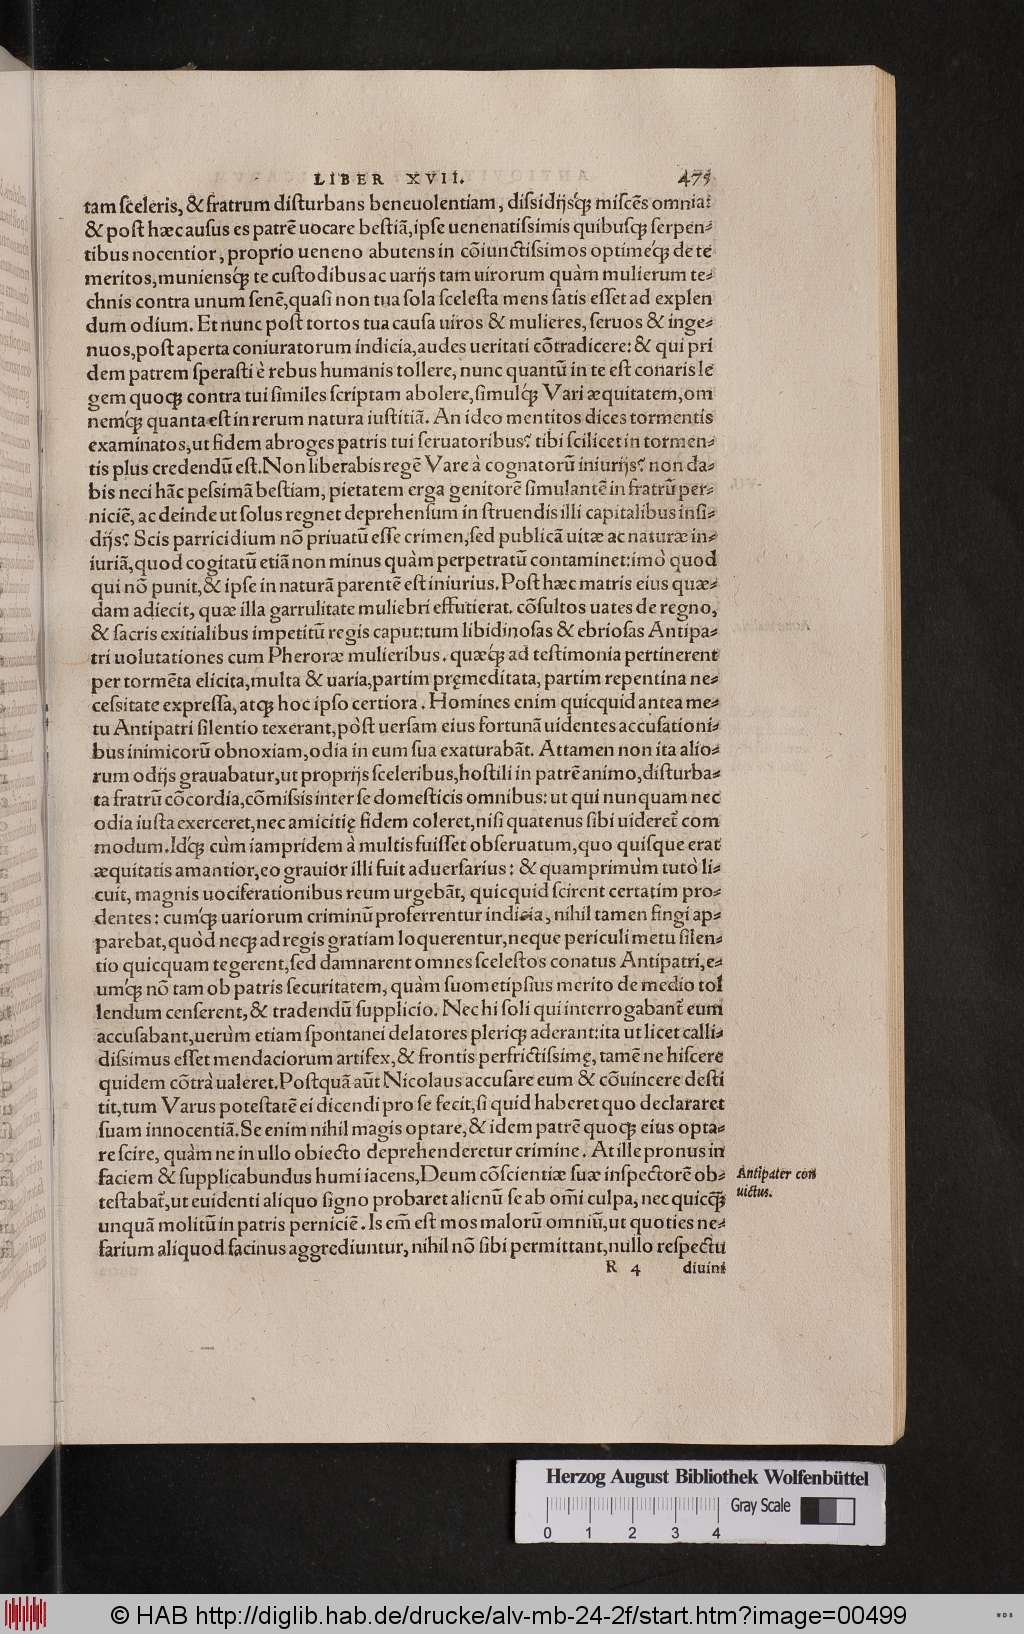 LIBER XVII. 475
tam sceleris, & fratrum disturbans beneuolentiam, dissidijsq́; miscēs omnia:
& post hæc ausus es patrē uocare bestiā, ipse uenenatissimis quibusq; serpen-
tibus nocentior, proprio ueneno abutens in cōiunctissimos optimeq́; de te
meritos, muniensq́; te custodibus ac uarijs tam uirorum quàm mulierum te-
chnis contra unum senē, quasi non tua sola scelesta mens satis esset ad explen
dum odium. Et nunc post tortos tua causa uiros & mulieres, seruos & inge-
nuos, post aperta coniuratorum indicia, audes ueritati cōtradicere: & qui pri
dem patrem sperasti è rebus humanis tollere, nunc quantū in te est conaris le
gem quoq; contra tui similes scriptam abolere, simulq́; Vari æquitatem, om
nemq́; quanta est in rerum natura iustitiā. An ideo mentitos dices tormentis
examinatos, ut fidem abroges patris tui seruatoribus? tibi scilicet in tormen-
tis plus credendū est. Non liberabis regē Vare à cognatorū iniurijs? non da-
bis neci hāc pessimā bestiam, pietatem erga genitorē simulantē in fratrū per-
niciē, ac deinde ut solus regnet deprehensum in struendis illi capitalibus insi-
dijs? Scis parricidium nō priuatū esse crimen, sed publicā uitæ ac naturæ in-
iuriā, quod cogitatū etiā non minus quàm perpetratū contaminet: imò quod
qui nō punit, & ipse in naturā parentē est iniurius. Post hæc matris eius quæ-
dam adiecit, quæ illa garrulitate muliebri effutierat. cōsultos uates de regno,
& sacris exitialibus impetitū regis caput: tum libidinosas & ebriosas Antipa-
tri uolutationes cum Pheroræ mulieribus. quæq́; ad testimonia pertinerent
per tormēta elicita, multa & uaria, partim pręmeditata, partim repentina ne-
cessitate expressa, atq; hoc ipso certiora. Homines enim quicquid antea me-
tu Antipatri silentio texerant, pòst uersam eius fortunā uidentes accusationi-
bus inimicorū obnoxiam, odia in eum sua exaturabāt. Attamen non ita alio-
rum odijs grauabatur, ut proprijs sceleribus, hostili in patrē animo, disturba-
ta fratrū cōcordia, cōmissis inter se domesticis omnibus: ut qui nunquam nec
odia iusta exerceret, nec amicitię fidem coleret, nisi quatenus sibi uideret̃ com
modum. Idq́; cùm iampridem à multis fuisset obseruatum, quo quisque erat
æquitatis amantior, eo grauior illi fuit aduersarius: & quamprimùm tutò li-
cuit, magnis uociferationibus reum urgebāt, quicquid scirent certatim pro-
dentes: cumq́; uariorum criminū proferrentur indicia, nihil tamen fingi ap-
parebat, quòd neq; ad regis gratiam loquerentur, neque periculi metu silen-
tio quicquam tegerent, sed damnarent omnes scelestos conatus Antipatri, e-
umq́; nō tam ob patris securitatem, quàm suometipsius merito de medio tol
lendum censerent, & tradendū supplicio. Nec hi soli qui interrogabant̃ eum
accusabant, uerùm etiam spontanei delatores pleriq; aderant: ita ut licet calli-
dissimus esset mendaciorum artifex, & frontis perfrictissimę, tamē ne hiscere
quidem cōtrà ualeret. Postquā aūt Nicolaus accusare eum & cōuincere desti
tit, tum Varus potestatē ei dicendi pro se fecit, si quid haberet quo declararet
suam innocentiā. Se enim nihil magis optare, & idem patrē quoq; eius opta-
re scire, quàm ne in ullo obiecto deprehenderetur crimine. At ille pronus in
faciem & supplicabundus humi iacens, Deum cōscientiæ suæ inspectorē ob-
testabat̃, ut euidenti aliquo signo probaret alienū se ab om̄i culpa, nec quicq̄;
unquā molitū in patris perniciē. Is em̄ est mos malorū omniū, ut quoties ne-
farium aliquod facinus aggrediuntur, nihil nō sibi permittant, nullo respectu
Antipater con
uictus.
R 4 diuini
Herzog August Bibliothek Wolfenbüttel
Gray Scale
0 1 2 3 4
© HAB http://diglib.hab.de/drucke/alv-mb-24-2f/start.htm?image=00499